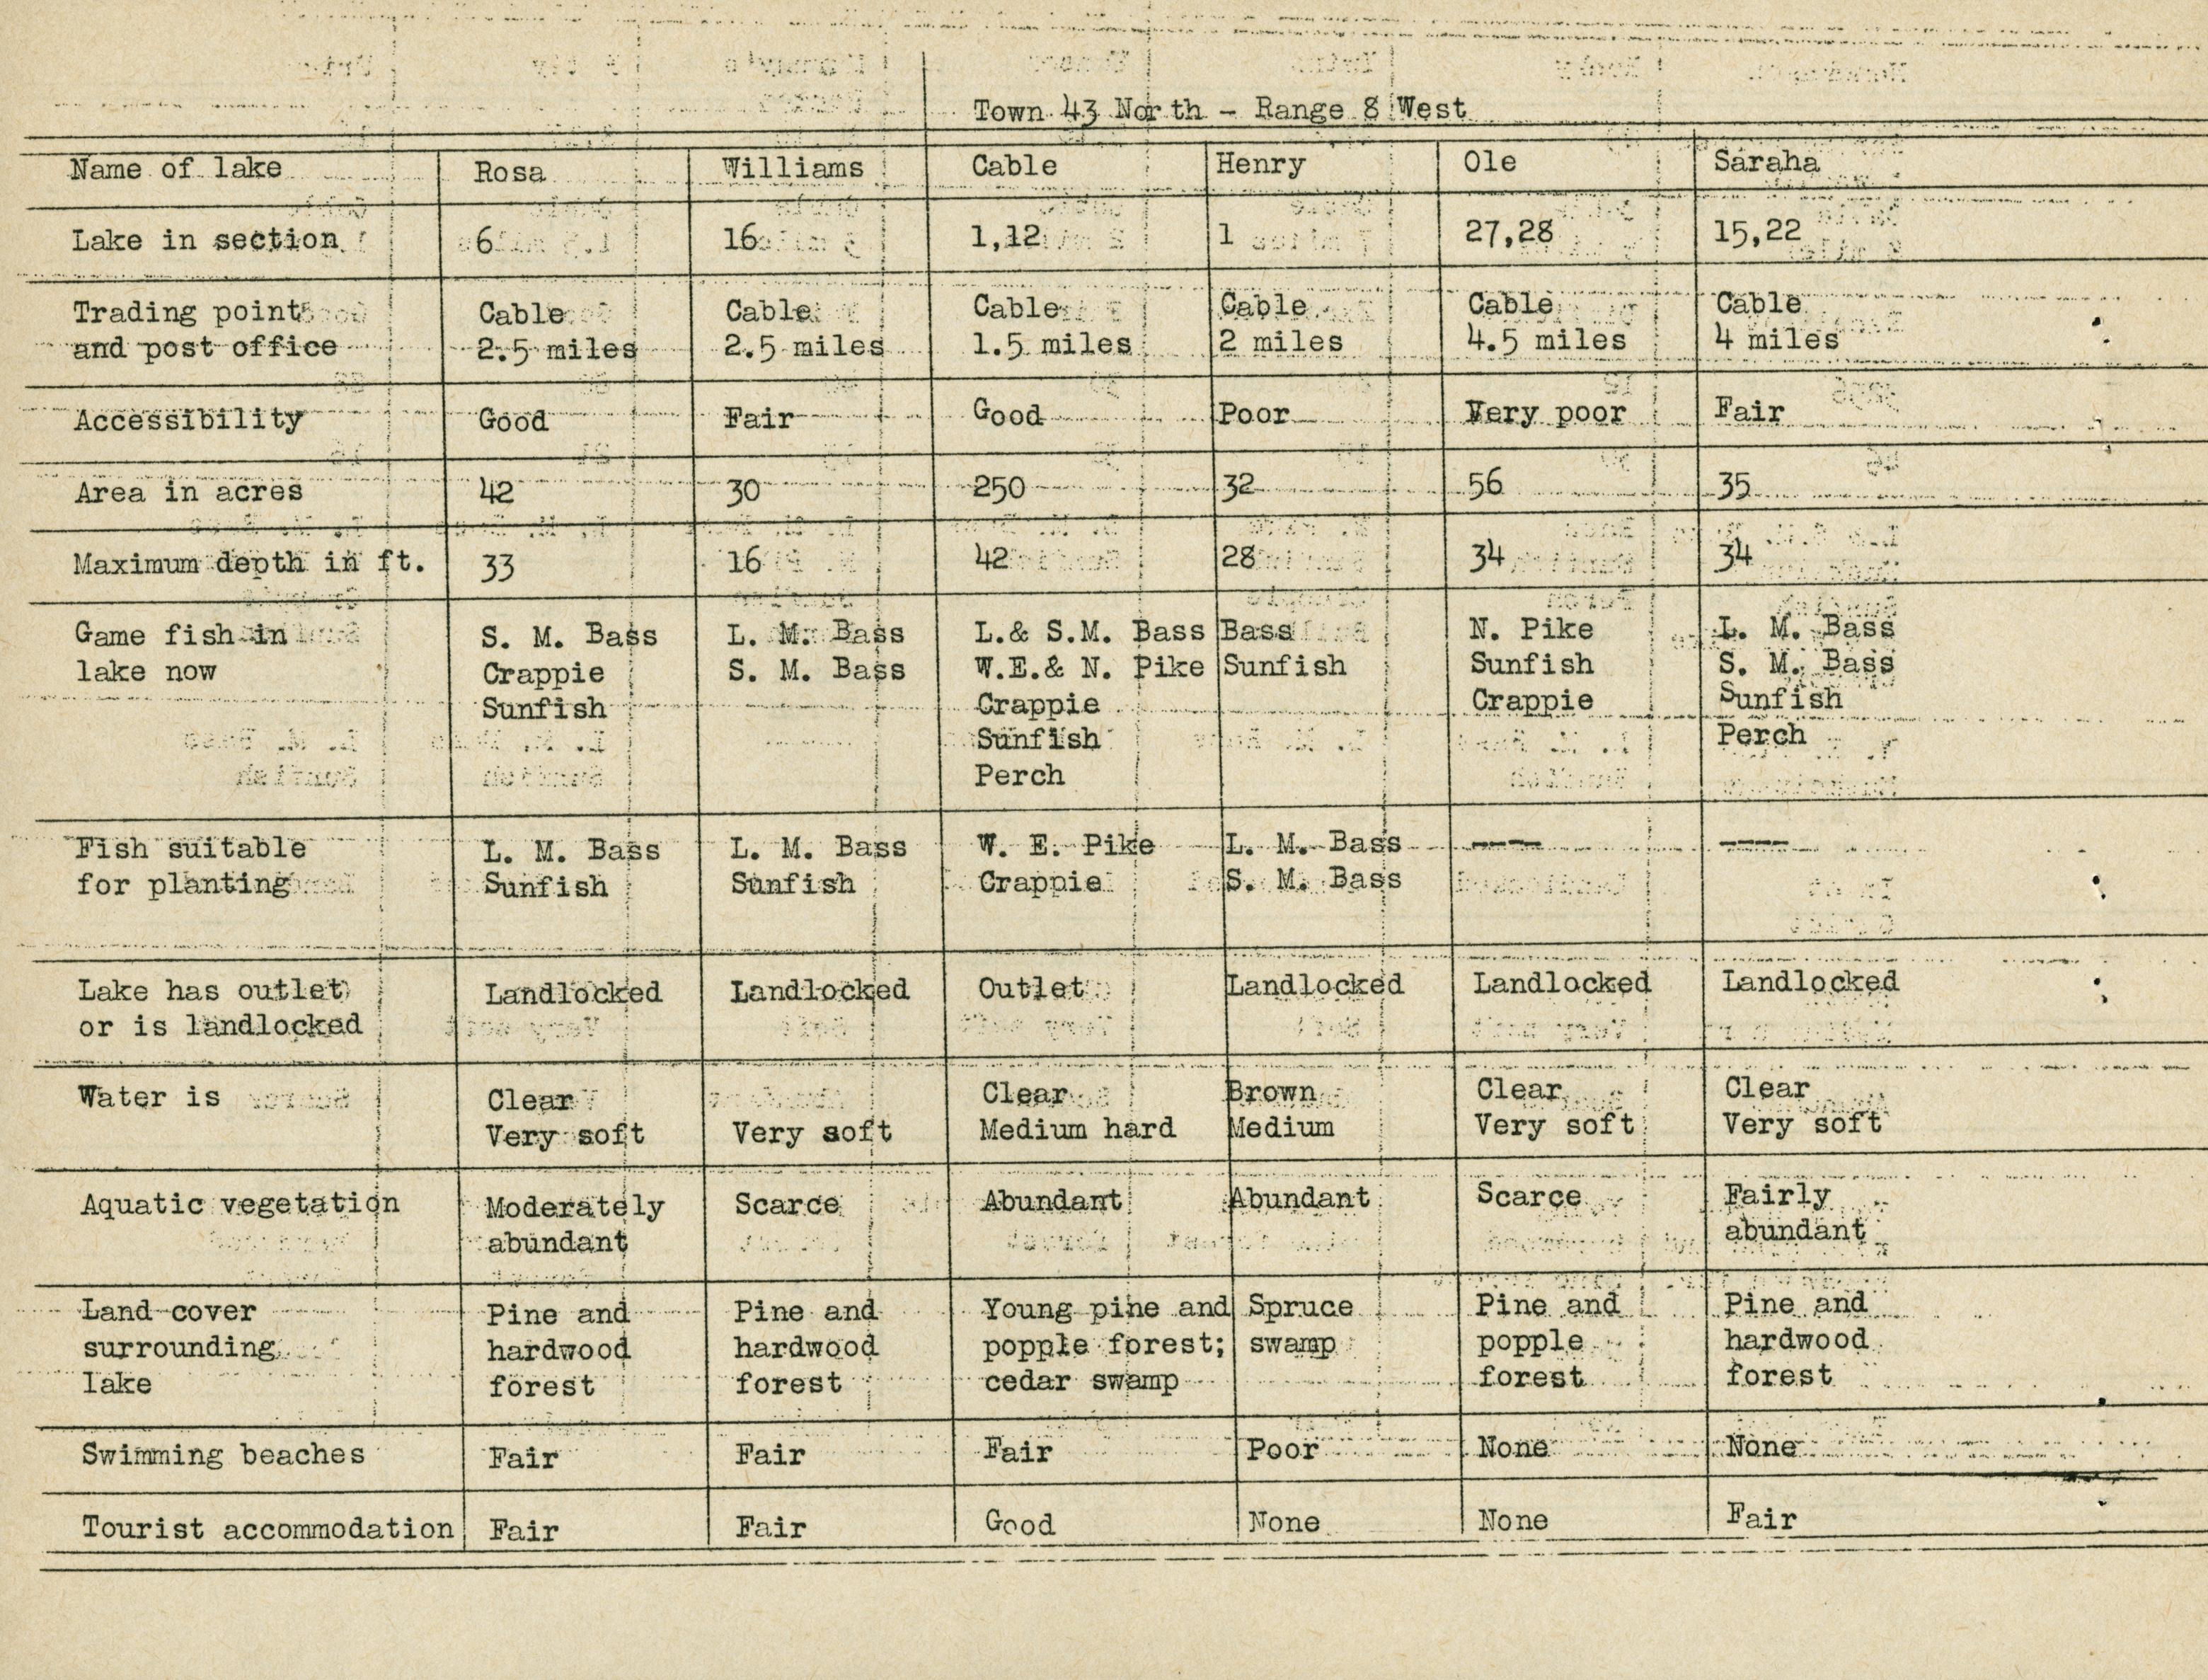 Town 43 North - Range 8 West
Name of lake Rosa Williams Cable Henry Ole Saraha
Lake in section 6 16 1,12 1 27,28 15,22
Trading point Cable Cable Cable Cable Cable Cable
and post office 2.5 miles 2.5 miles 1.5 miles 2 miles 4.5 miles 4 miles
Accessibility Good Fair Good Poor Very poor Fair
Area in acres 42 30 250 32 56 35
Maximum depth in ft. 33 16 42 28 34 34
Game fish in S. M. Bass L. M. Bass L.& S.M. Bass Bass N. Pike L. M. Bass
lake now Crappie S. M. Bass W.E.& N. Pike Sunfish Sunfish S. M. Bass
Sunfish Crappie Crappie Sunfish
Sunfish Perch
Perch
Fish suitable L. M. Bass L. M. Bass W. E. Pike L. M. Bass ---- ----
for planting Sunfish Sunfish Crappie S. M. Bass
Lake has outlet Landlocked Landlocked Outlet Landlocked Landlocked Landlocked
or is landlocked
Water is Clear Clear Brown Clear Clear
Very soft Very soft Medium hard Medium Very soft Very soft
Aquatic vegetation Moderately Scarce Abundant Abundant Scarce Fairly
abundant abundant
Land cover Pine and Pine and Young pine and Spruce Pine and Pine and
surrounding hardwood hardwood popple forest; swamp popple hardwood
lake forest forest cedar swamp forest forest
Swimming beaches Fair Fair Fair Poor None None
Tourist accommodation Fair Fair Good None None Fair